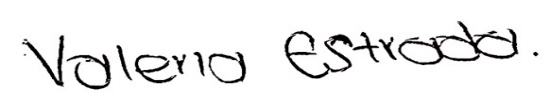 Valeria Estrada.